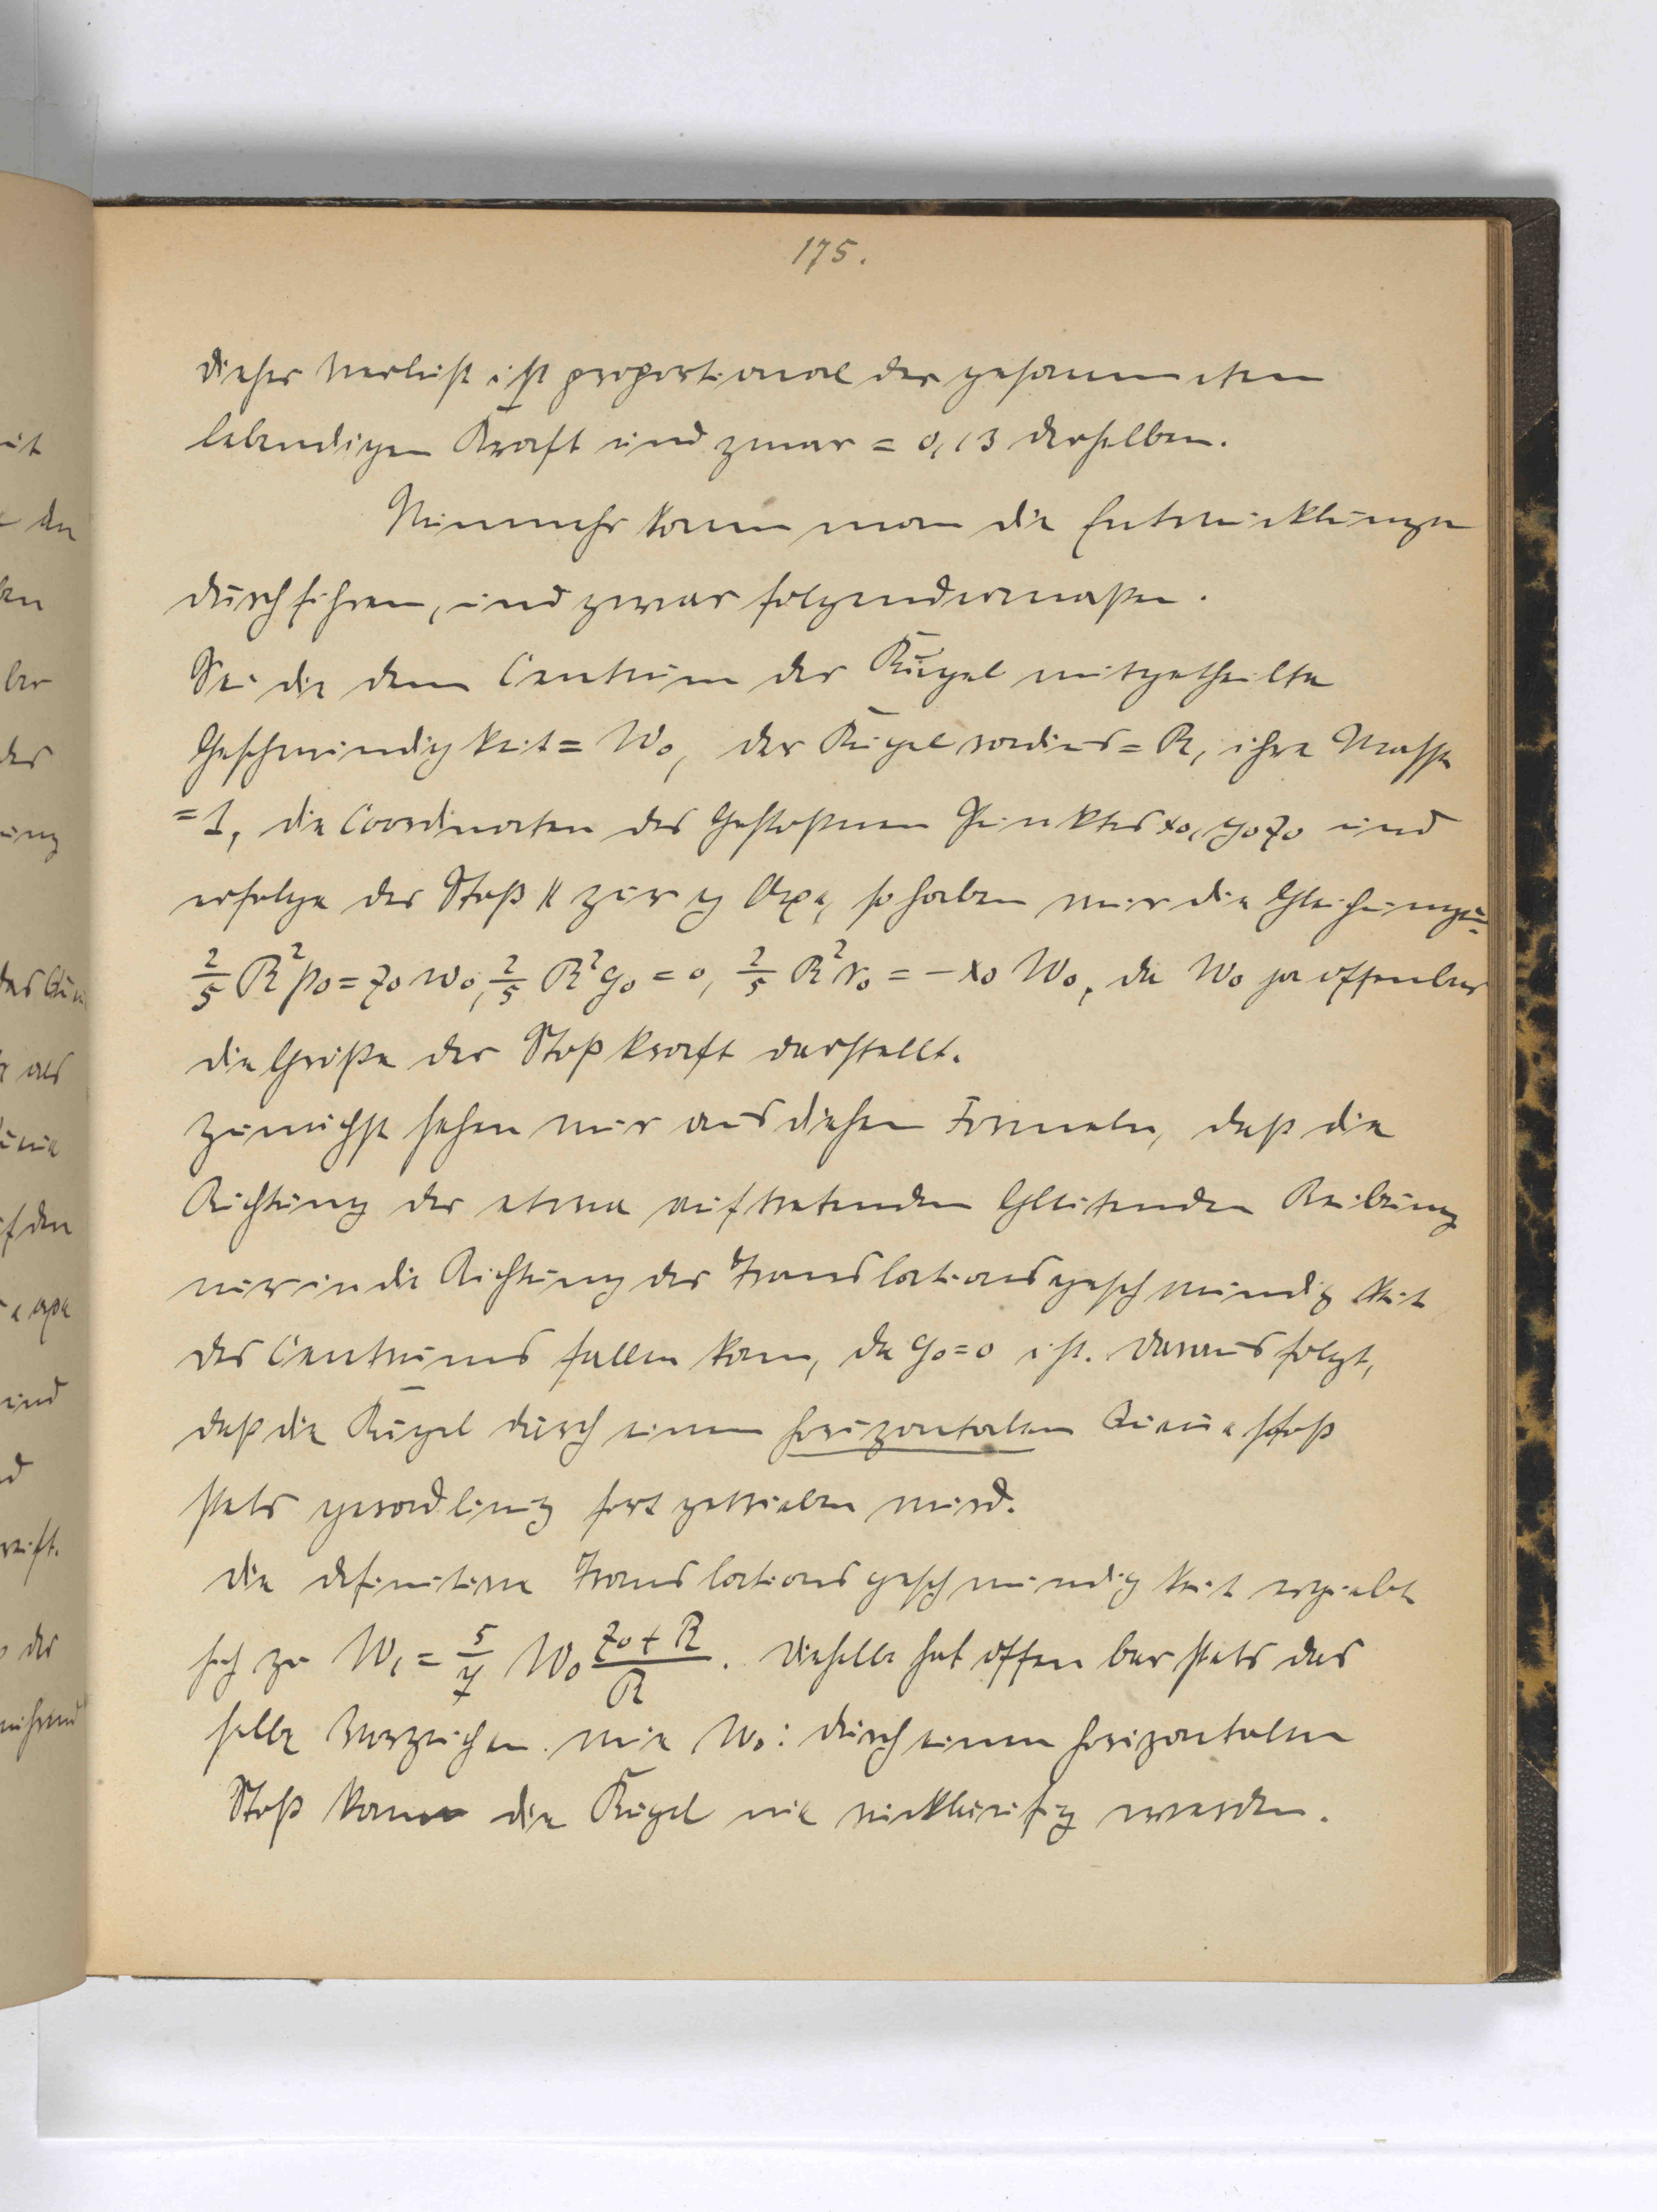 175.
dieser Verlust ist proportional der gesammten
lebendigen Kraft und zwar = 0,13 derselben.
Nunmehr kann man die Entwicklungen
durchführen, und zwar folgendermaßen.
Sei die dem Centrum der Kugel mitgetheilte
Geschwindigkeit = W₀, der Kugelradius = R, ihre Masse
= 1, die Coordinaten des gestoßenen Punktes x₀, y₀ z₀ und
erfolge der Stoß ∥ zur y Axe, so haben wir die Gleichungen:
2/5 R² p₀ = z₀ w₀, 2/5 R² q₀ = 0, 2/5 R² r₀ = − x₀ W₀, da W₀ ja offenbar
die Größe der Stoßkraft darstellt.
Zunächst sehen wir aus diesen Formeln, daß die
Richtung der etwa auftretenden gleitenden Reibung
nur in die Richtung der Translationsgeschwindigkeit
des Centrums fallen kann, da q₀ = 0 ist. Daraus folgt,
daß die Kugel durch einen horizontalen Queuestoß
stets geradlinig fortgetrieben wird.
Die definitive Translationsgeschwindigkeit ergiebt
sich zu W₁ = 5/7 W₀ (z₀ + R)/R. Dieselbe hat offenbar stets das
selbe Vorzeichen wie W₀: durch einen horizontalen
Stoß kann die Kugel nie rückläufig werden.
it
den
ben
ber
des
ung
das Qu
als
f den
Axe
und
d
reift.
der
während